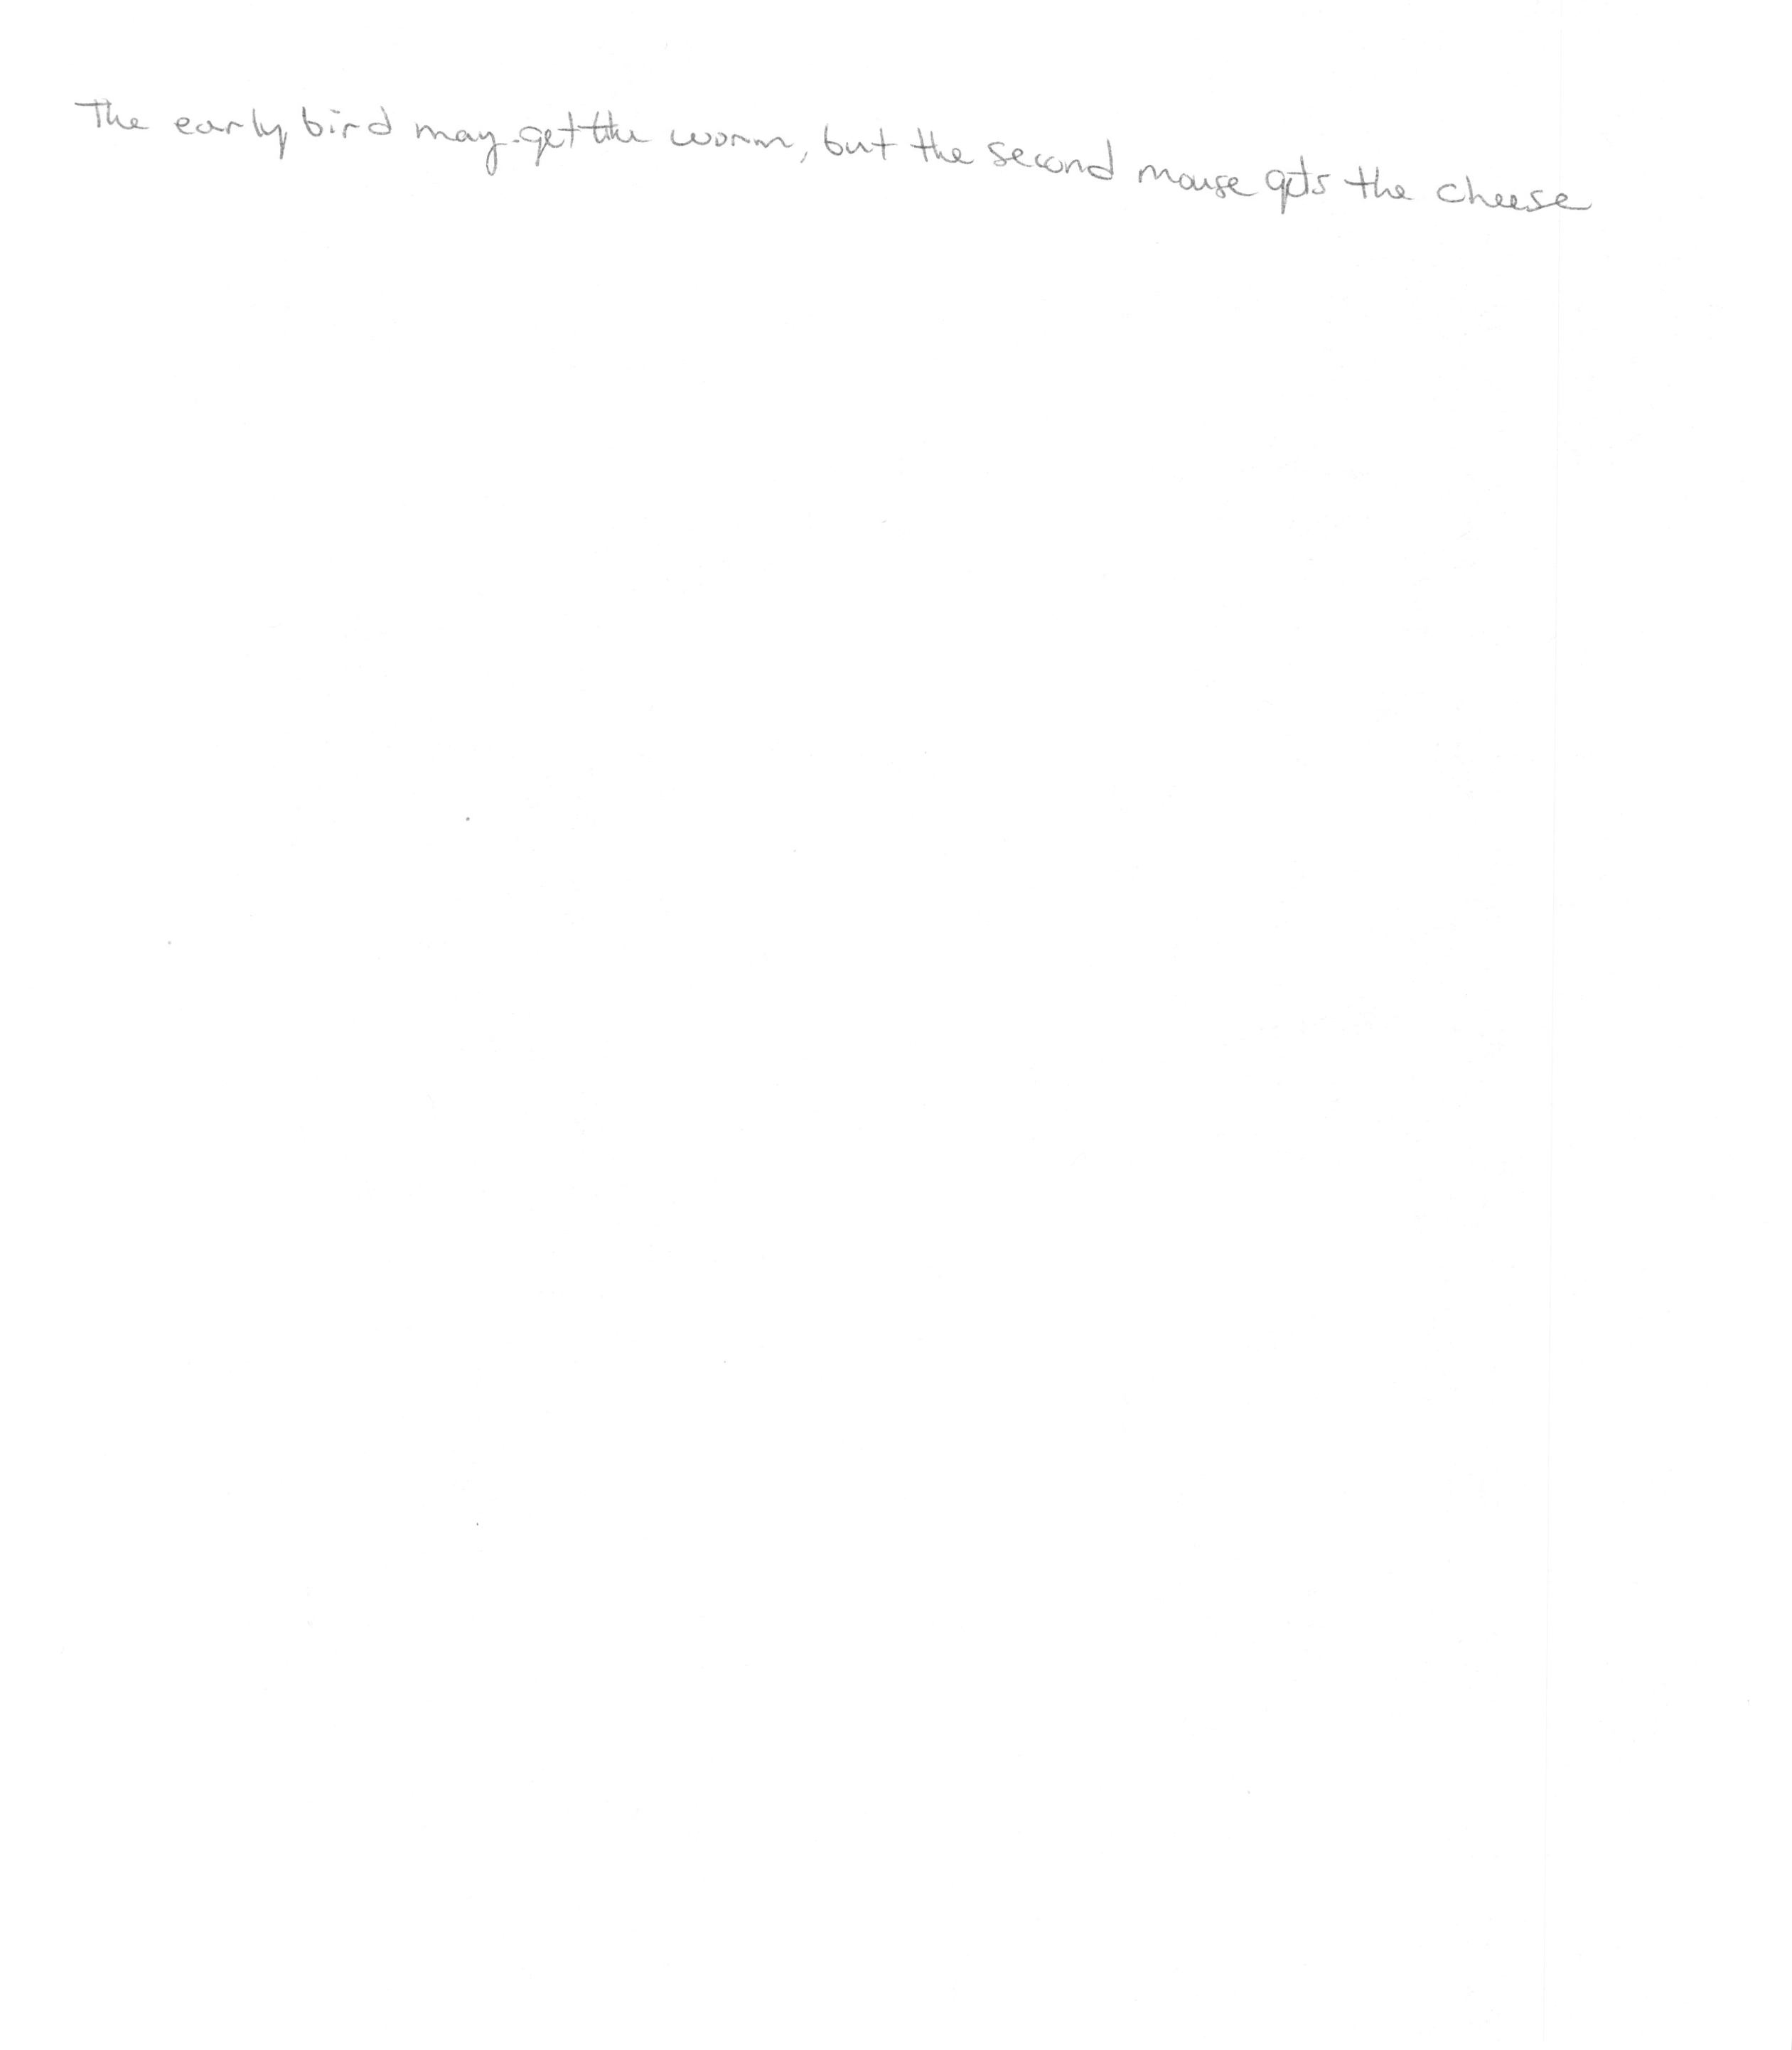 The early bird may get the worm, but the second mouse gets the cheese